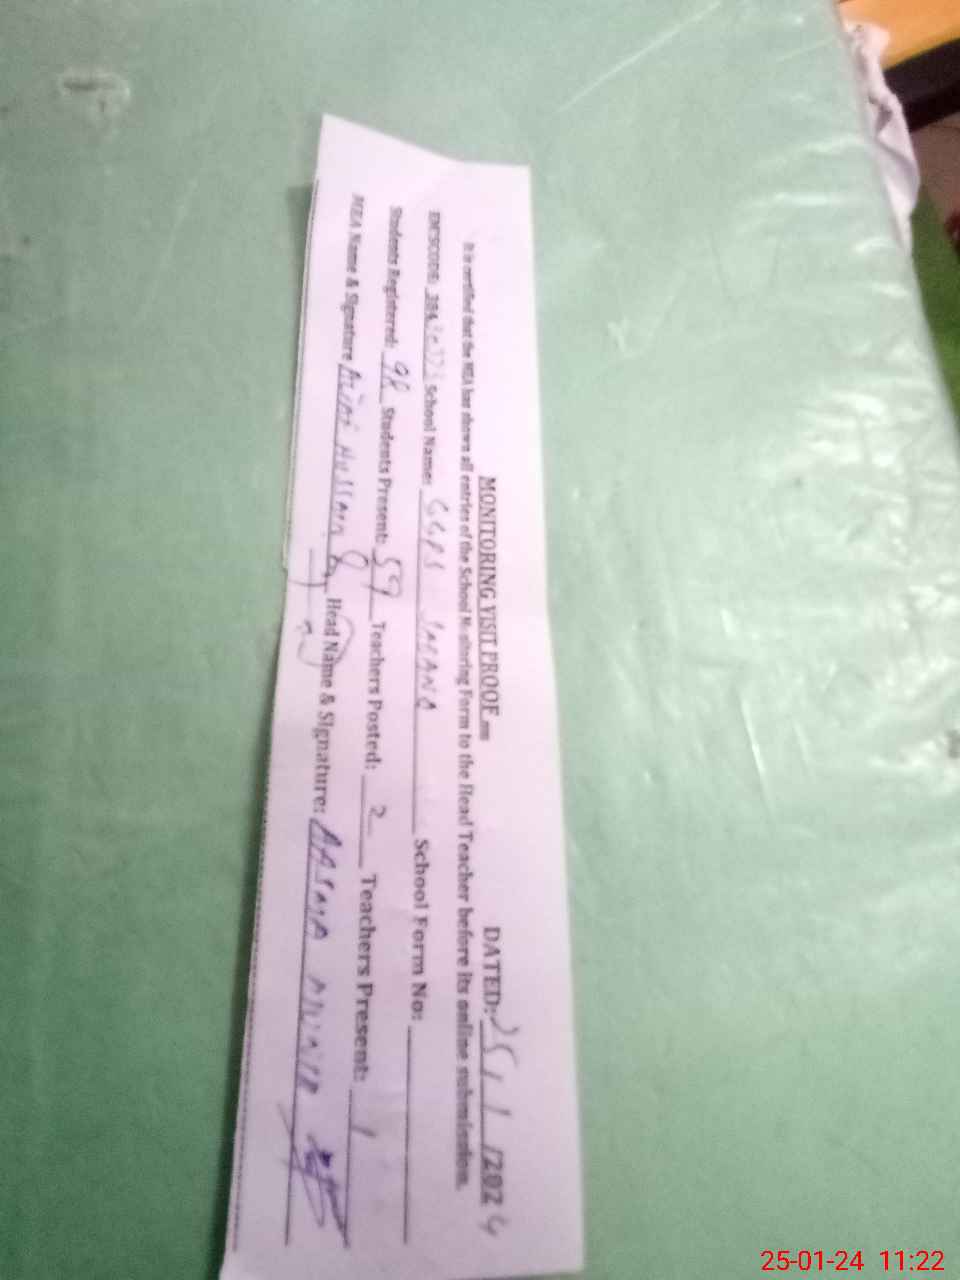 MONITORING VISIT PROOF DATED: 25/1/2024
It is certified that the MEA has shown all entries of the School Monitoring Form to the Head Teacher before its online submission.
EMISCODE: School Name: GGPS School Form No:
Students Registered: 98 Students Present: 59 Teachers Posted: 2 Teachers Present: 1
MEA Name & Signature Hussain Head Name & Signature:
25-01-24 11:22